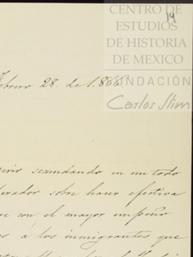 CENTRO DE
ESTUDIOS
DE HISTORIA
DE MEXICO
FUNDACIÓN
Carlos Slim
14
28 de 1866
secundando en un todo
sobre hacer efectiva
con el mayor empeño
á los inmigrantes que